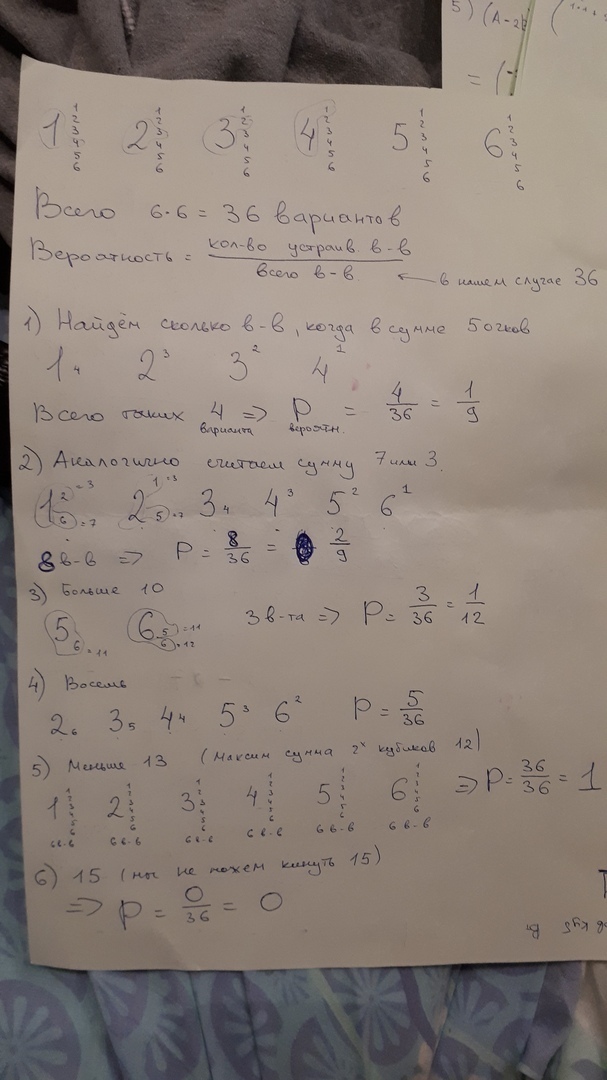 5) (A-2
= (
1 1 2 3 4 5 6 2 1 2 3 4 5 6 3 1 2 3 4 5 6 4 1 2 3 4 5 6 5 1 2 3 4 5 6 6 1 2 3 4 5 6
Всего 6·6 = 36 вариантов
Вероятность = кол-во устраив. в-в / всего в-в. ← в нашем случае 36
1) Найдём сколько в-в, когда в сумме 5 очков
1 4 2 3 3 2 4 1
Всего таких 4 варианта => P вероятн. = 4/36 = 1/9
2) Аналогично считаем сумму 7 или 3.
1 2 =3 6 =7 2 1 =3 5 =7 3 4 4 3 5 2 6 1
8 в-в => P = 8/36 = 2/9
3) Больше 10
5 6 =11 6 5 =11 6 =12 3 в-та => P = 3/36 = 1/12
4) Восемь
2 6 3 5 4 4 5 3 6 2 P = 5/36
5) Меньше 13 (максим сумма 2х кубиков 12)
1 1 2 3 4 5 6 2 1 2 3 4 5 6 3 1 2 3 4 5 6 4 1 2 3 4 5 6 5 1 2 3 4 5 6 6 1 2 3 4 5 6 => P = 36/36 = 1
6 в-в 6 в-в 6 в-в 6 в-в 6 в-в 6 в-в
6) 15 (мы не можем кинуть 15)
=> P = 0/36 = 0